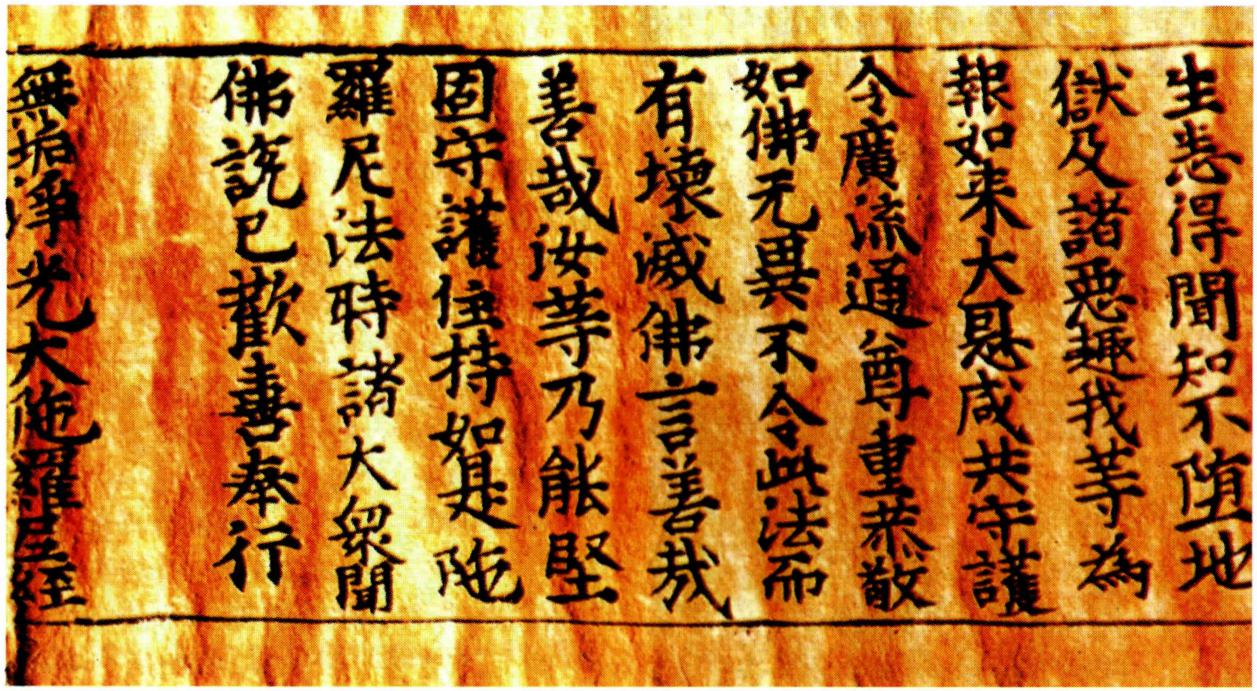 生悉得聞知不堕地
獄及諸惡趣我等為
報如来大恩咸共守護
令廣流通尊重恭敬
如佛无異不令此法而
有壊滅佛言善哉
善哉汝等乃能堅
固守護住持如是陁
羅尼法時諸大眾聞
佛説已歡喜奉行
無垢淨光大陁羅尼經